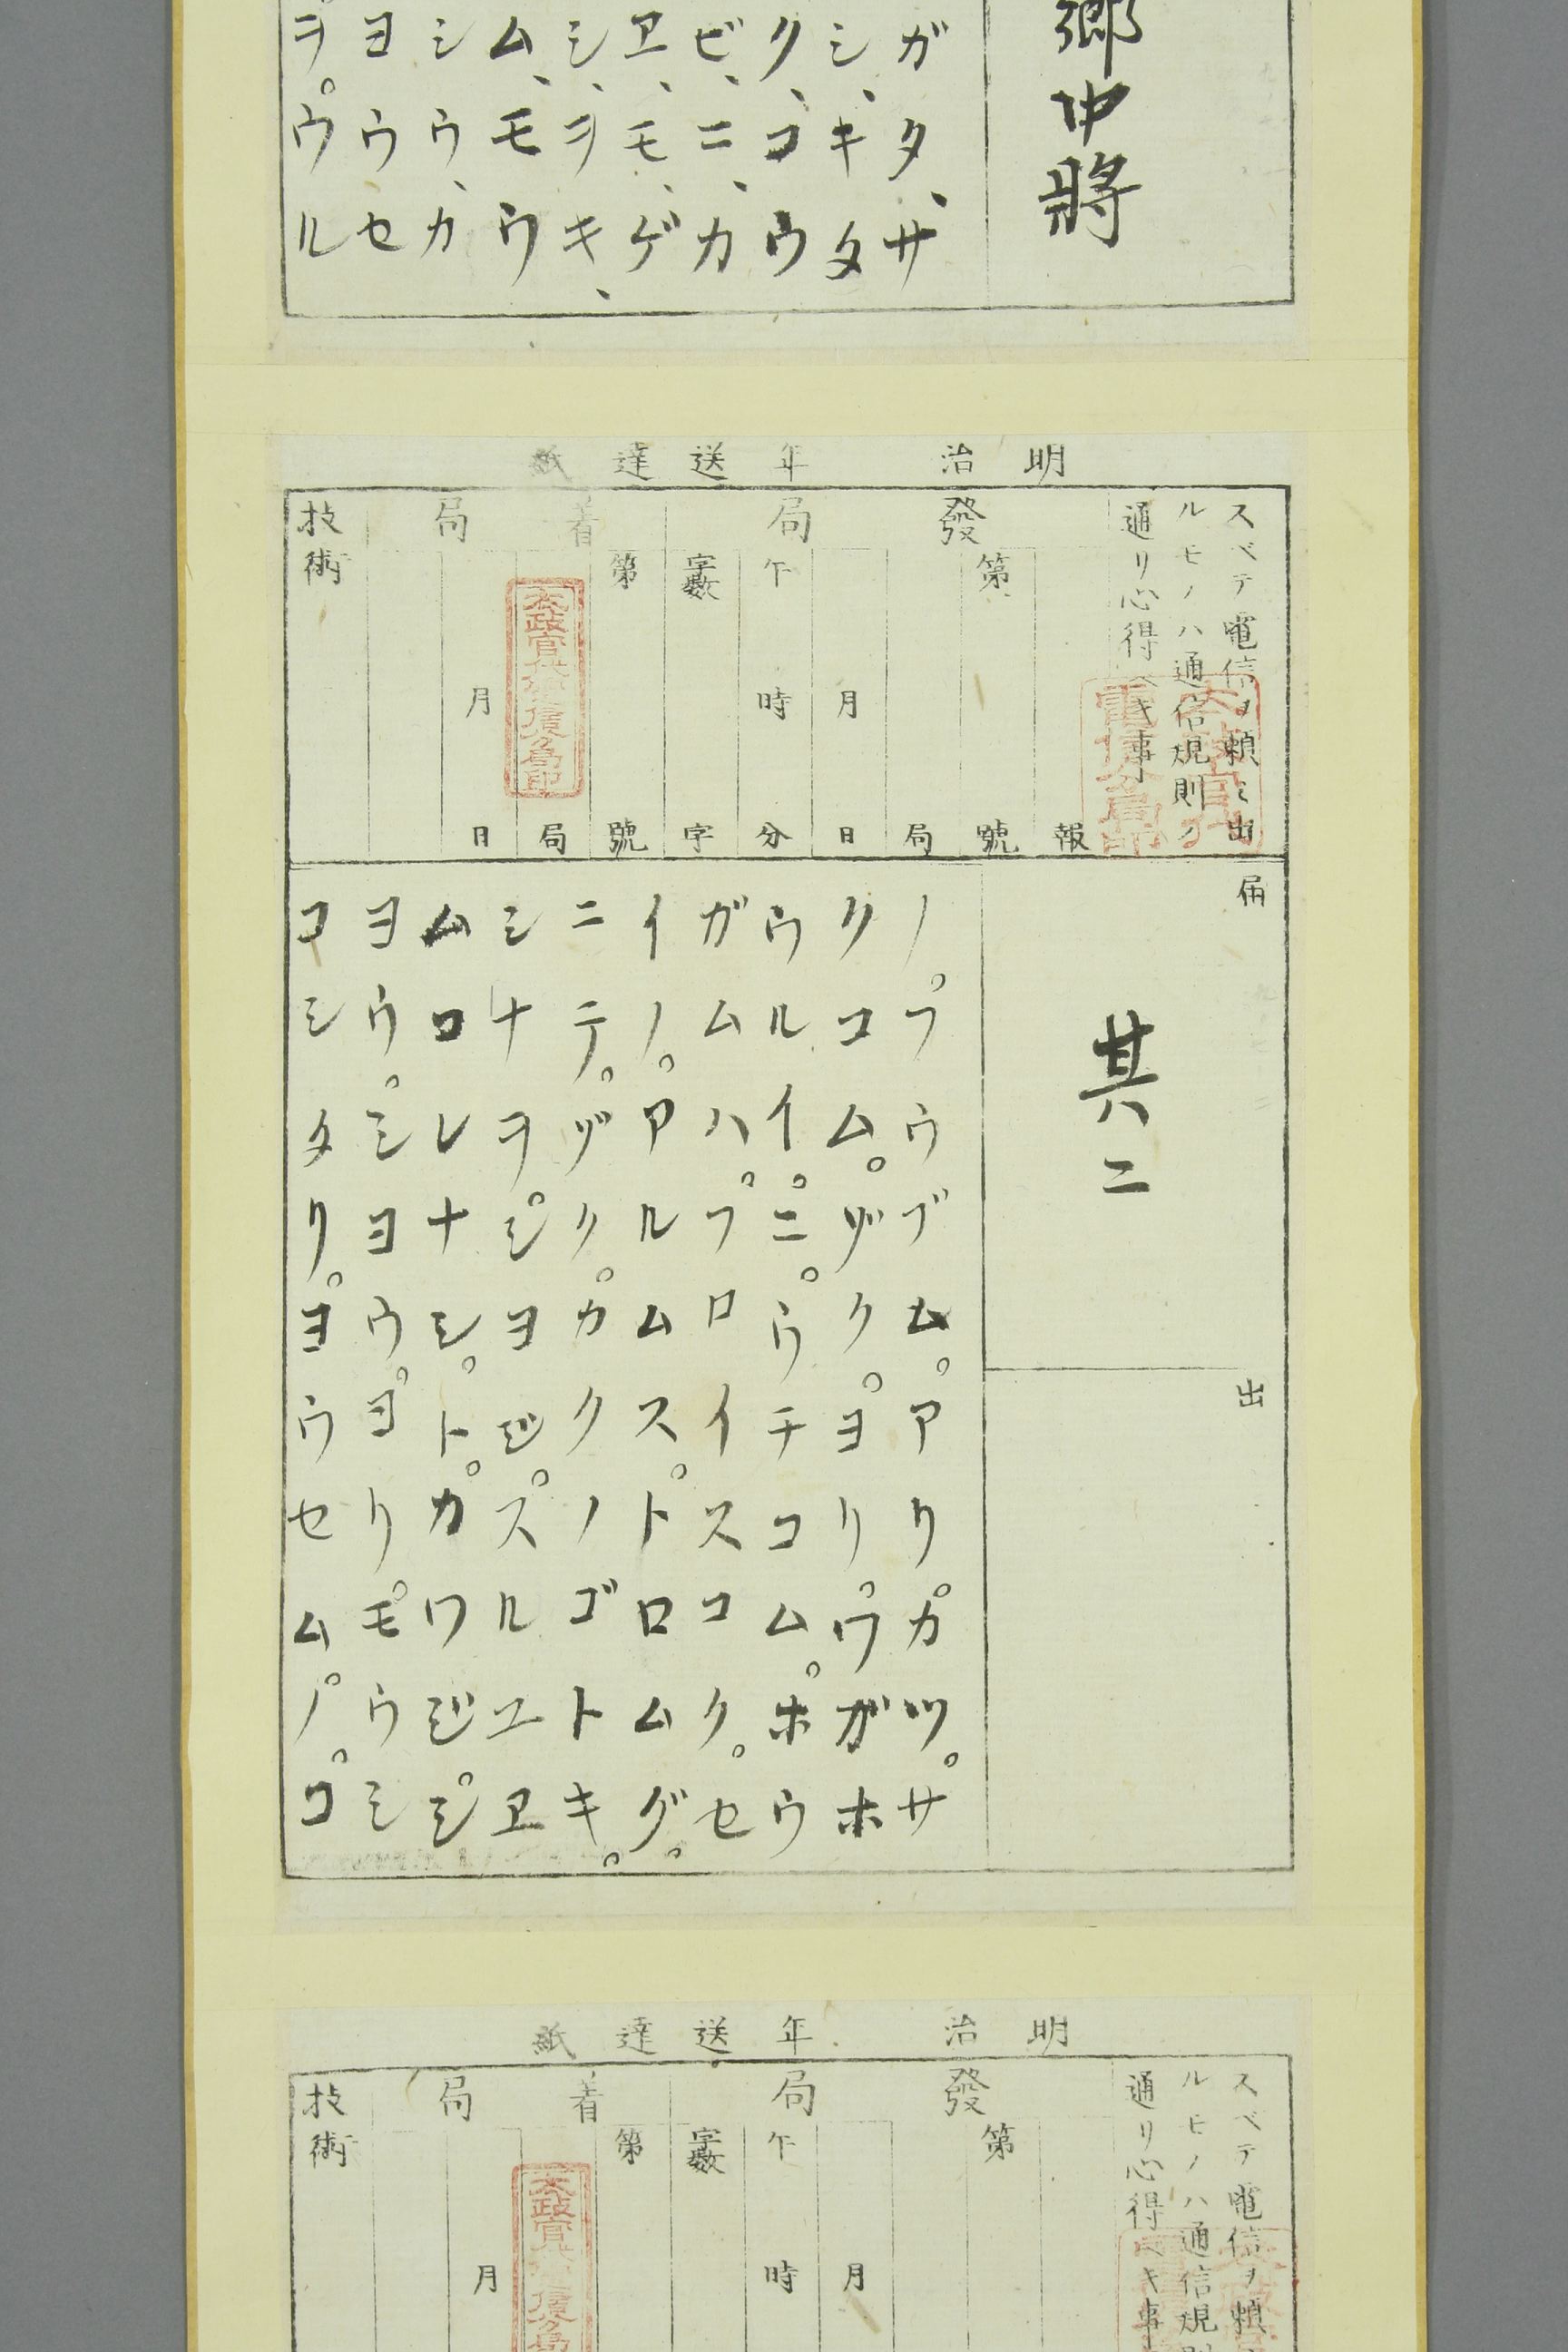 郷中將
ガタ、サ
シ、キタ
ク、コウ
ビ、ニ、カ
ヱ、モ、ゲ
シ、ヲキ、
ム、モウ
シウ、カ
ヨウセ
ヲ。ウル
明治 年送達紙
スベテ電信ヲ頼ミ出
ルモノハ通信規則ノ
通リ心得ベキ事
發局
報
第 號
局
月 日
午 時 分
字數 字
着局
第 號
局
月 日
技術
届
其二
出
ノ。フウブム。アリ。カツ。サ
クコム。ヅク。ヨリ。ウガホ
ウルイ。ニ。ウチコム。ホウ
ガムハ。フロイスコク。セ
イノ。アルムス。トロムグ。
ニテ。ヅク。カクノゴトキ。
シナヲ。シヨジ。スルユヱ
ムロレナシ。ト。カワジ。シ
ヨウ。シヨウ。ヨリ。モウシ
コシタリ。ヨウセム。ノ。コ
明治 年送達紙
スベテ電信ヲ頼
ルモノハ通信規則
通リ心得ベキ事
發局
第
月
午 時
字數
着局
第
月
技術